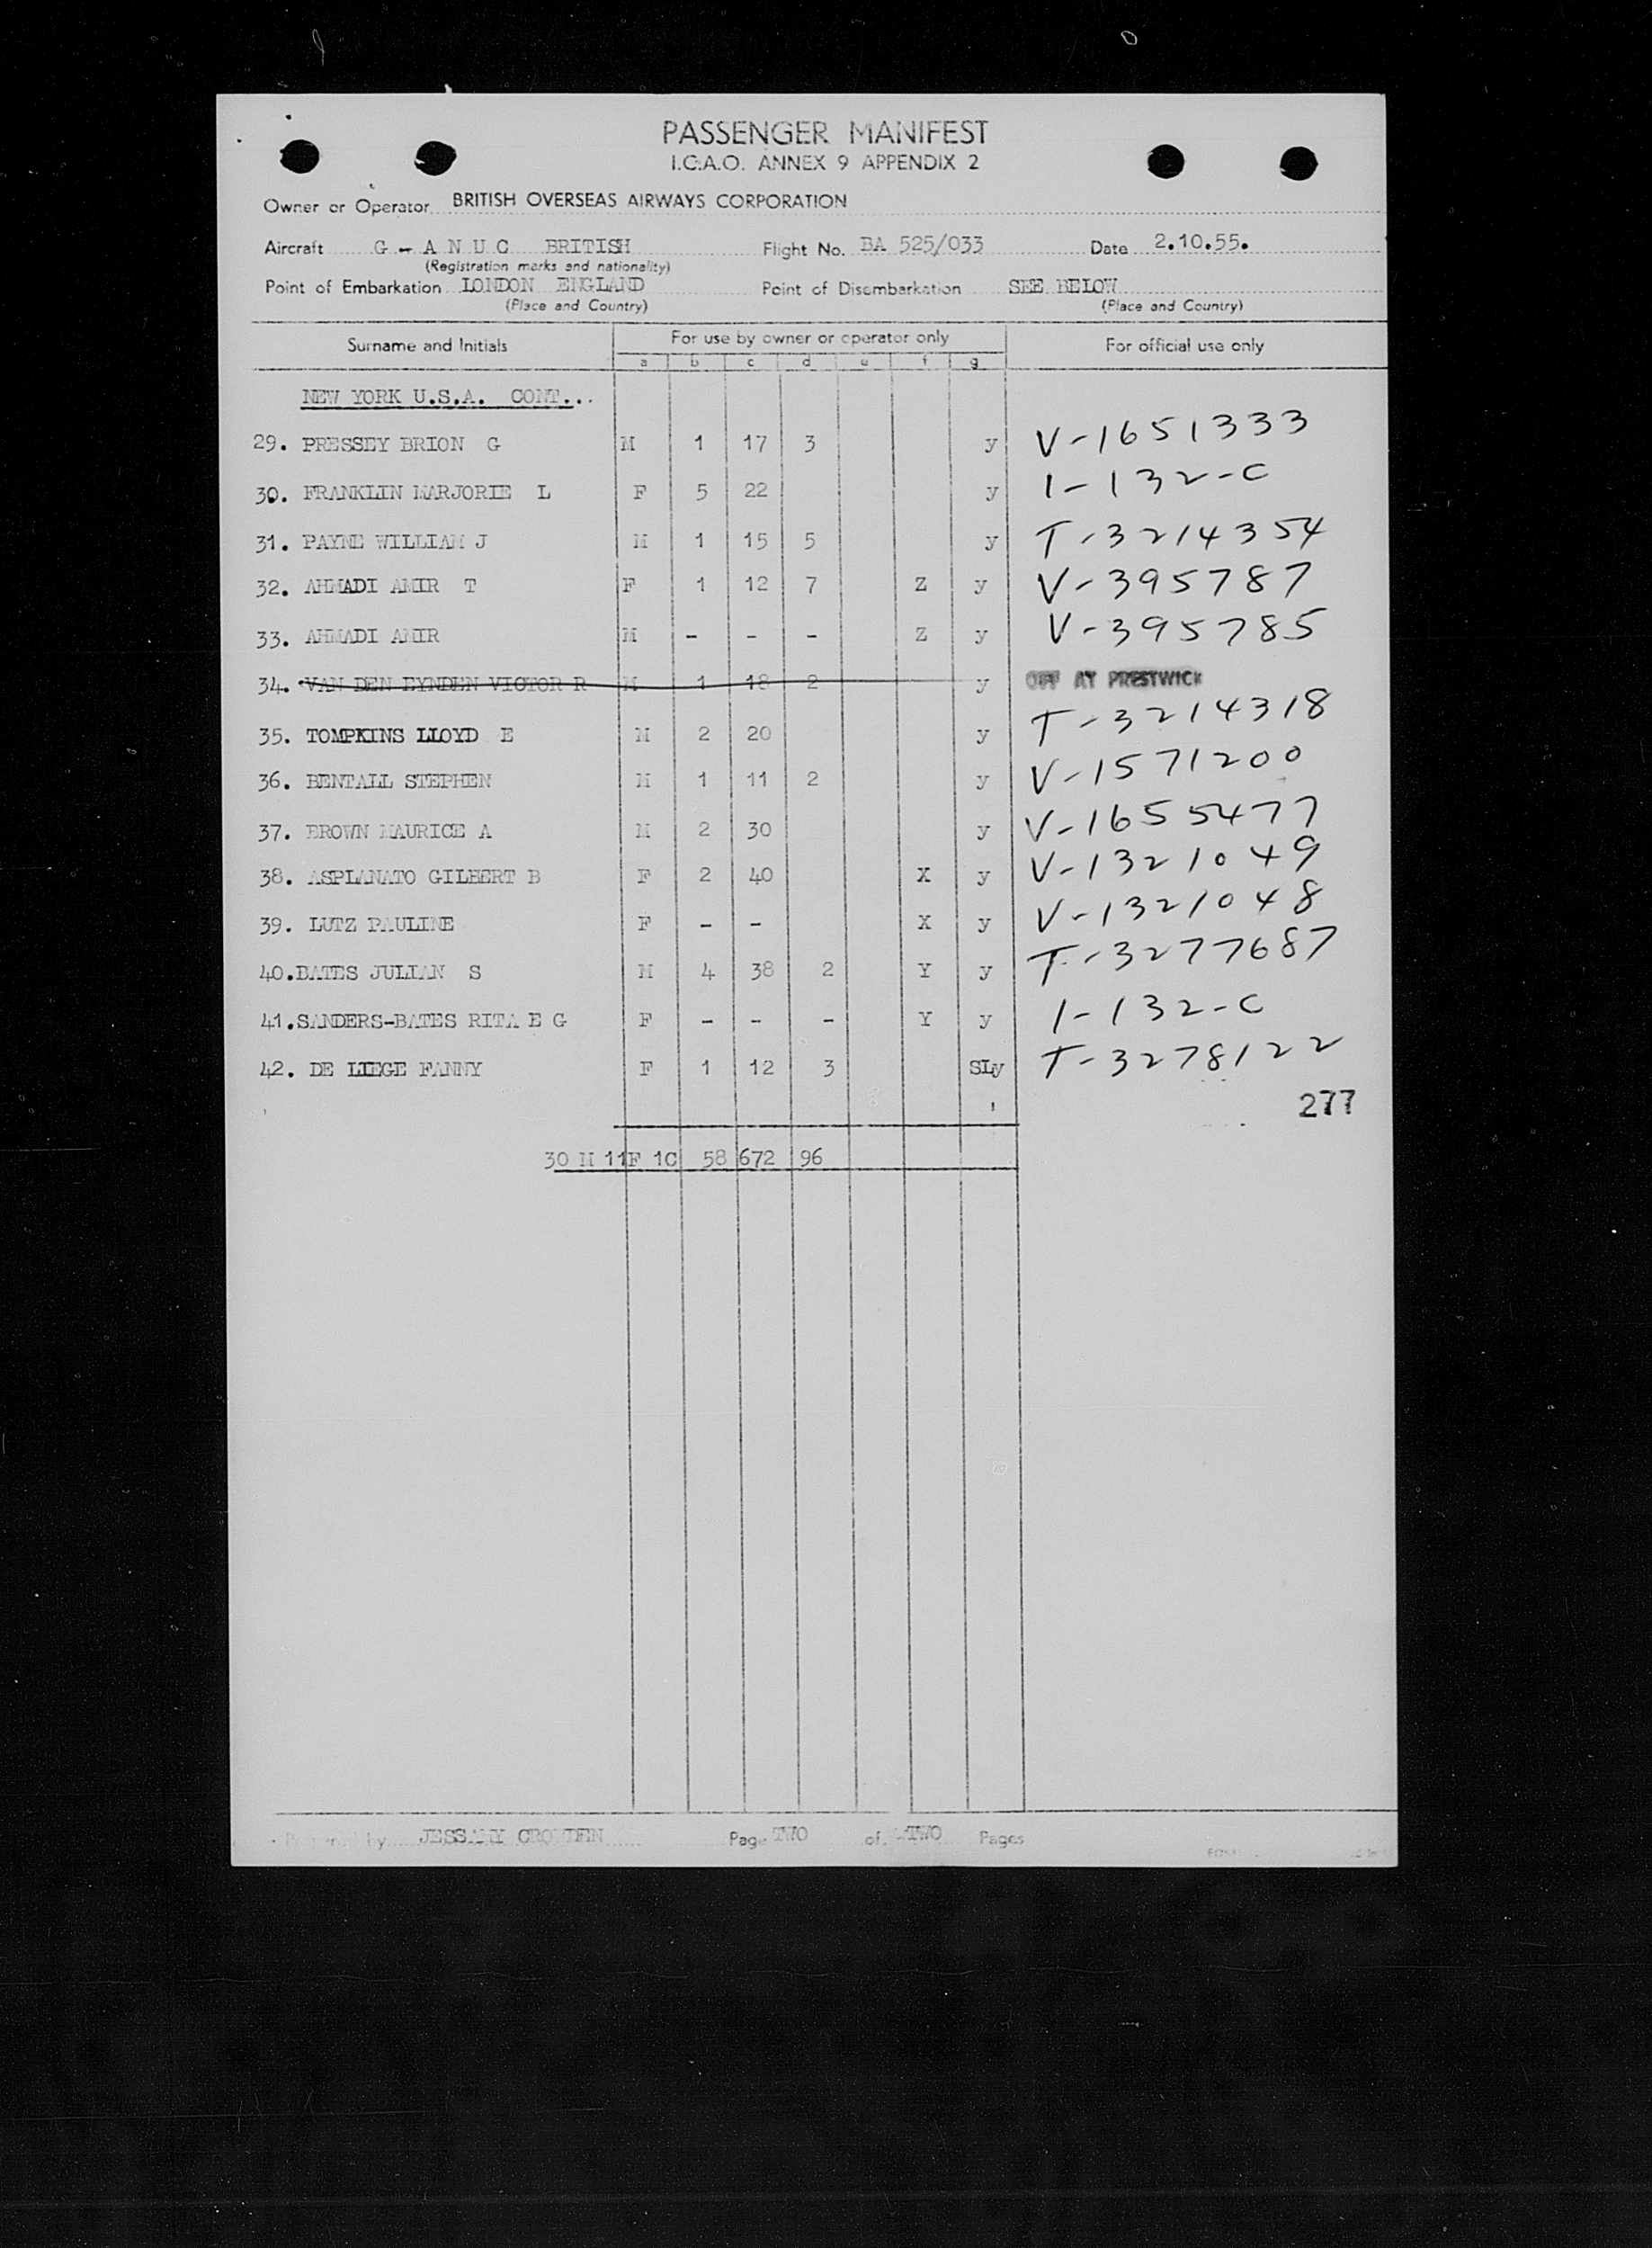 PASSENGER MANIFEST
I.C.A.O. ANNEX 9 APPENDIX 2
Owner or Operator BRITISH OVERSEAS AIRWAYS CORPORATION
Aircraft G - A N U C BRITISH Flight No. BA 525/033 Date 2.10.55.
(Registration marks and nationality)
Point of Embarkation LONDON ENGLAND Point of Disembarkation SEE BELOW
(Place and Country) (Place and Country)
Surname and Initials For use by owner or operator only For official use only
a b c d e f g
NEW YORK U.S.A. CONT...
29. PRESSEY BRION G M 1 17 3 y V-1651333
30. FRANKLIN MARJORIE L F 5 22 y 1-132-C
31. PAYNE WILLIAM J M 1 15 5 y T-3214354
32. AHMADI AMIR T F 1 12 7 Z y V-395787
33. AHMADI AMIR M - - - Z y V-395785
34. VAN DEN EYNDEN VICTOR R M 1 18 2 y OFF AT PRESTWICK
35. TOMPKINS LLOYD E M 2 20 y T-3214318
36. BENTALL STEPHEN M 1 11 2 y V-1571200
37. BROWN MAURICE A M 2 30 y V-1655477
38. ASPLANATO GILBERT B F 2 40 X y V-1321049
39. LUTZ PAULINE F - - X y V-1321048
40. BATES JULIAN S M 4 38 2 Y y T-3277687
41. SANDERS-BATES RITA E G F - - - Y y 1-132-C
42. DE LIEGE FANNY F 1 12 3 SLy T-3278122
277
30 M 11F 1C 58 672 96
by JESSAMY Page TWO of TWO Pages